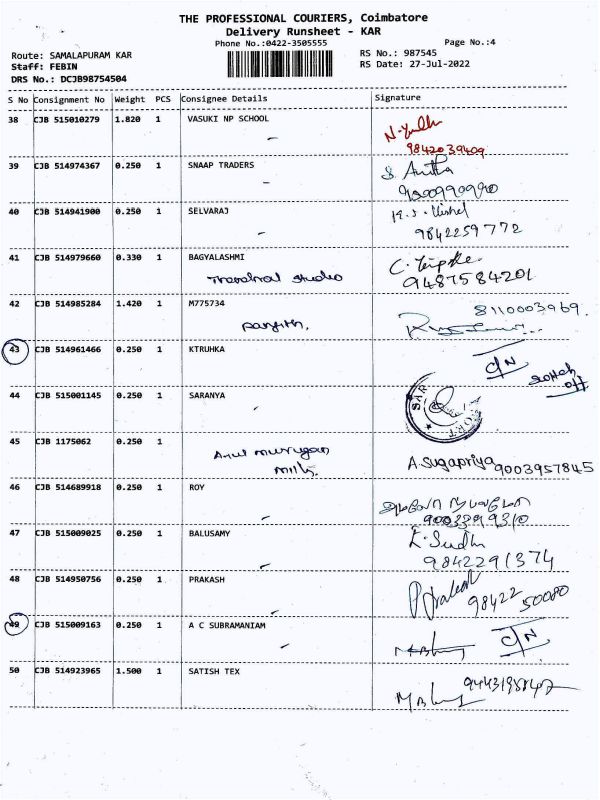 THE PROFESSIONAL COURIERS, Coimbatore
Delivery Runsheet - KAR
Phone No.:0422-3505555
Page No.:4
Route: SAMALAPURAM KAR
Staff: FEBIN
DRS No.: DCJB98754504
RS No.: 987545
RS Date: 27-Jul-2022
S No Consignment No Weight PCS Consignee Details Signature
38 CJB 515010279 1.820 1 VASUKI NP SCHOOL
9842039409
39 CJB 514974367 0.250 1 SNAAP TRADERS
S. Anitha
40 CJB 514941900 0.250 1 SELVARAJ
9842259772
41 CJB 514979660 0.330 1 BAGYALASHMI
studio
9487584201
42 CJB 514985284 1.420 1 M775734
8110003969.
43 CJB 514961466 0.250 1 KTRUHKA
C/N
off
44 CJB 515001145 0.250 1 SARANYA
45 CJB 1175062 0.250 1
Arul murugan
mills.
A.Sugapriya 9003957845
46 CJB 514689918 0.250 1 ROY
47 CJB 515009025 0.250 1 BALUSAMY
K. Sudha
9842291374
48 CJB 514950756 0.250 1 PRAKASH
Prakash
98422 50080
49 CJB 515009163 0.250 1 A C SUBRAMANIAM
C/N
50 CJB 514923965 1.500 1 SATISH TEX